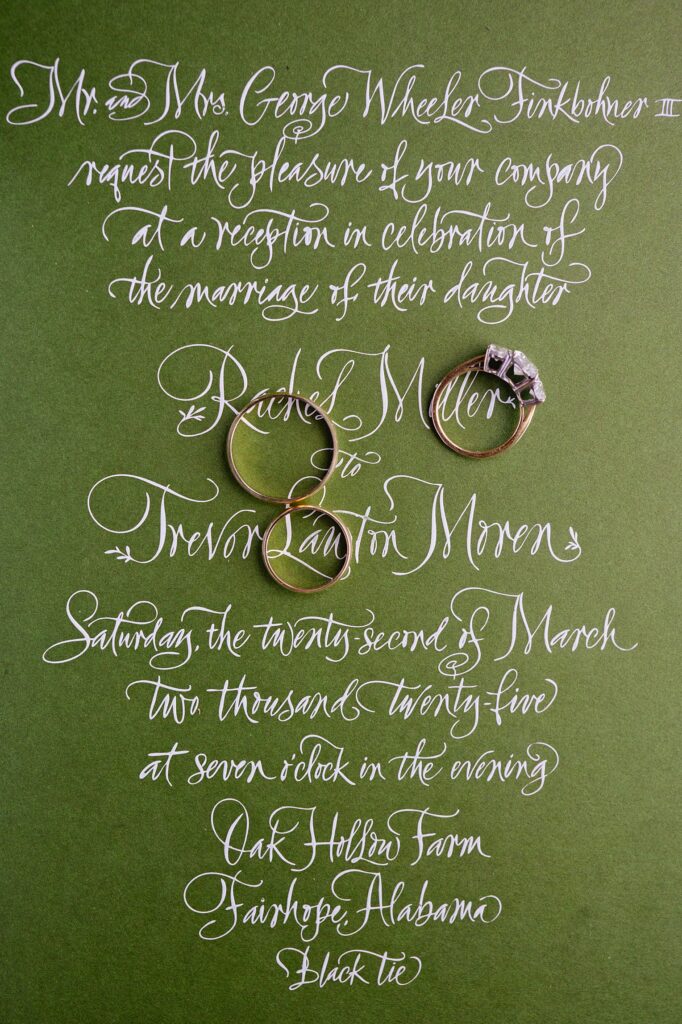 Mr. and Mrs. George Wheeler Finkbohner III
request the pleasure of your company
at a reception in celebration of
the marriage of their daughter
Rachel Miller
to
Trevor Lawton Moren
Saturday, the twenty-second of March
two thousand twenty-five
at seven o'clock in the evening
Oak Hollow Farm
Fairhope, Alabama
Black tie